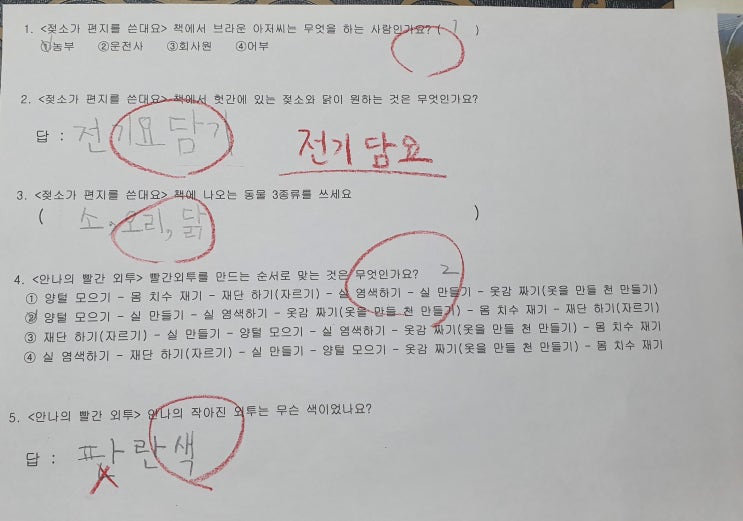 1. <젖소가 편지를 쓴대요> 책에서 브라운 아저씨는 무엇을 하는 사람인가요? ( 1 )
①농부 ②운전사 ③회사원 ④어부
2. <젖소가 편지를 쓴대요> 책에서 헛간에 있는 젖소와 닭이 원하는 것은 무엇인가요?
답 : 전기요담기
전기담요
3. <젖소가 편지를 쓴대요> 책에 나오는 동물 3종류를 쓰세요
( 소, 오리, 닭 )
4. <안나의 빨간 외투> 빨간외투를 만드는 순서로 맞는 것은 무엇인가요? 2
① 양털 모으기 - 몸 치수 재기 - 재단 하기(자르기) - 실 염색하기 - 실 만들기 - 옷감 짜기(옷을 만들 천 만들기)
② 양털 모으기 - 실 만들기 - 실 염색하기 - 옷감 짜기(옷을 만들 천 만들기) - 몸 치수 재기 - 재단 하기(자르기)
③ 재단 하기(자르기) - 실 만들기 - 양털 모으기 - 실 염색하기 - 옷감 짜기(옷을 만들 천 만들기) - 몸 치수 재기
④ 실 염색하기 - 재단 하기(자르기) - 실 만들기 - 양털 모으기 - 옷감 짜기(옷을 만들 천 만들기) - 몸 치수 재기
5. <안나의 빨간 외투> 안나의 작아진 외투는 무슨 색이었나요?
답 : 파란색